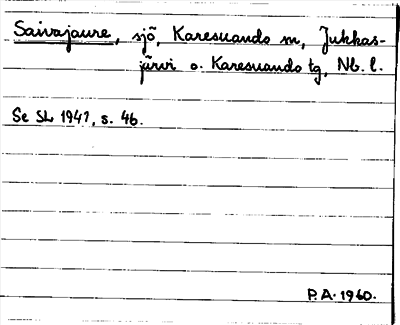 Saivajaure, sjö, Karesuando sn, Jukkas-
järvi o. Karesuando tg, Nb. l.
Se SL 1941, s. 46.
P.A. 1960.